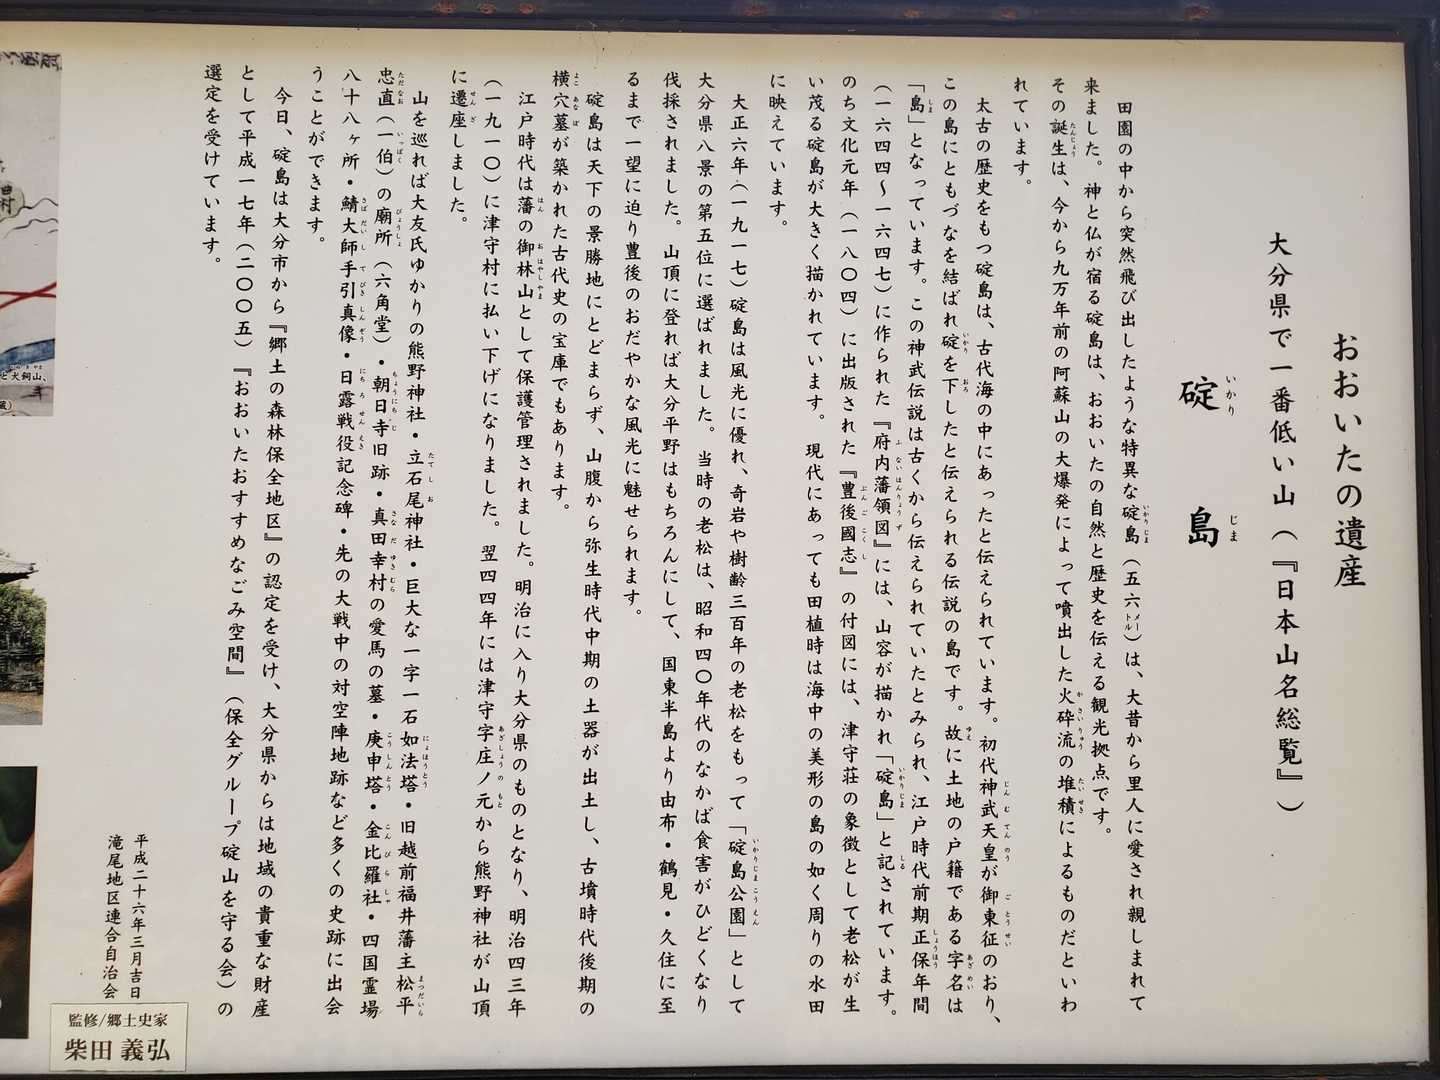 おおいたの遺産
大分県で一番低い山（『日本山名総覧』）
碇島
いかりじま
田園の中から突然飛び出したような特異な碇島（五六メートル）は、大昔から里人に愛され親しまれて
来ました。神と仏が宿る碇島は、おおいたの自然と歴史を伝える観光拠点です。
その誕生は、今から九万年前の阿蘇山の大爆発によって噴出した火砕流の堆積によるものだといわ
れています。
太古の歴史をもつ碇島は、古代海の中にあったと伝えられています。初代神武天皇が御東征のおり、
この島にともづなを結ばれ碇を下したと伝えられる伝説の島です。故に土地の戸籍である字名は
「島」となっています。この神武伝説は古くから伝えられていたとみられ、江戸時代前期正保年間
（一六四四～一六四七）に作られた『府内藩領図』には、山容が描かれ「碇島」と記されています。
のち文化元年（一八〇四）に出版された『豊後國志』の付図には、津守荘の象徴として老松が生
い茂る碇島が大きく描かれています。現代にあっても田植時は海中の美形の島の如く周りの水田
に映えています。
大正六年（一九一七）碇島は風光に優れ、奇岩や樹齢三百年の老松をもって「碇島公園」として
大分県八景の第五位に選ばれました。当時の老松は、昭和四〇年代のなかば食害がひどくなり
伐採されました。山頂に登れば大分平野はもちろんにして、国東半島より由布・鶴見・久住に至
るまで一望に迫り豊後のおだやかな風光に魅せられます。
碇島は天下の景勝地にとどまらず、山腹から弥生時代中期の土器が出土し、古墳時代後期の
横穴墓が築かれた古代史の宝庫でもあります。
江戸時代は藩の御林山として保護管理されました。明治に入り大分県のものとなり、明治四三年
（一九一〇）に津守村に払い下げになりました。翌四四年には津守字庄ノ元から熊野神社が山頂
に遷座しました。
山を巡れば大友氏ゆかりの熊野神社・立石尾神社・巨大な一字一石如法塔・旧越前福井藩主松平
忠直（一伯）の廟所（六角堂）・朝日寺旧跡・真田幸村の愛馬の墓・庚申塔・金比羅社・四国霊場
八十八ヶ所・鯖大師手引真像・日露戦役記念碑・先の大戦中の対空陣地跡など多くの史跡に出会
うことができます。
今日、碇島は大分市から『郷土の森林保全地区』の認定を受け、大分県からは地域の貴重な財産
として平成一七年（二〇〇五）『おおいたおすすめなごみ空間』（保全グループ碇山を守る会）の
選定を受けています。
平成二十六年三月吉日
滝尾地区連合自治会
監修/郷土史家
柴田 義弘